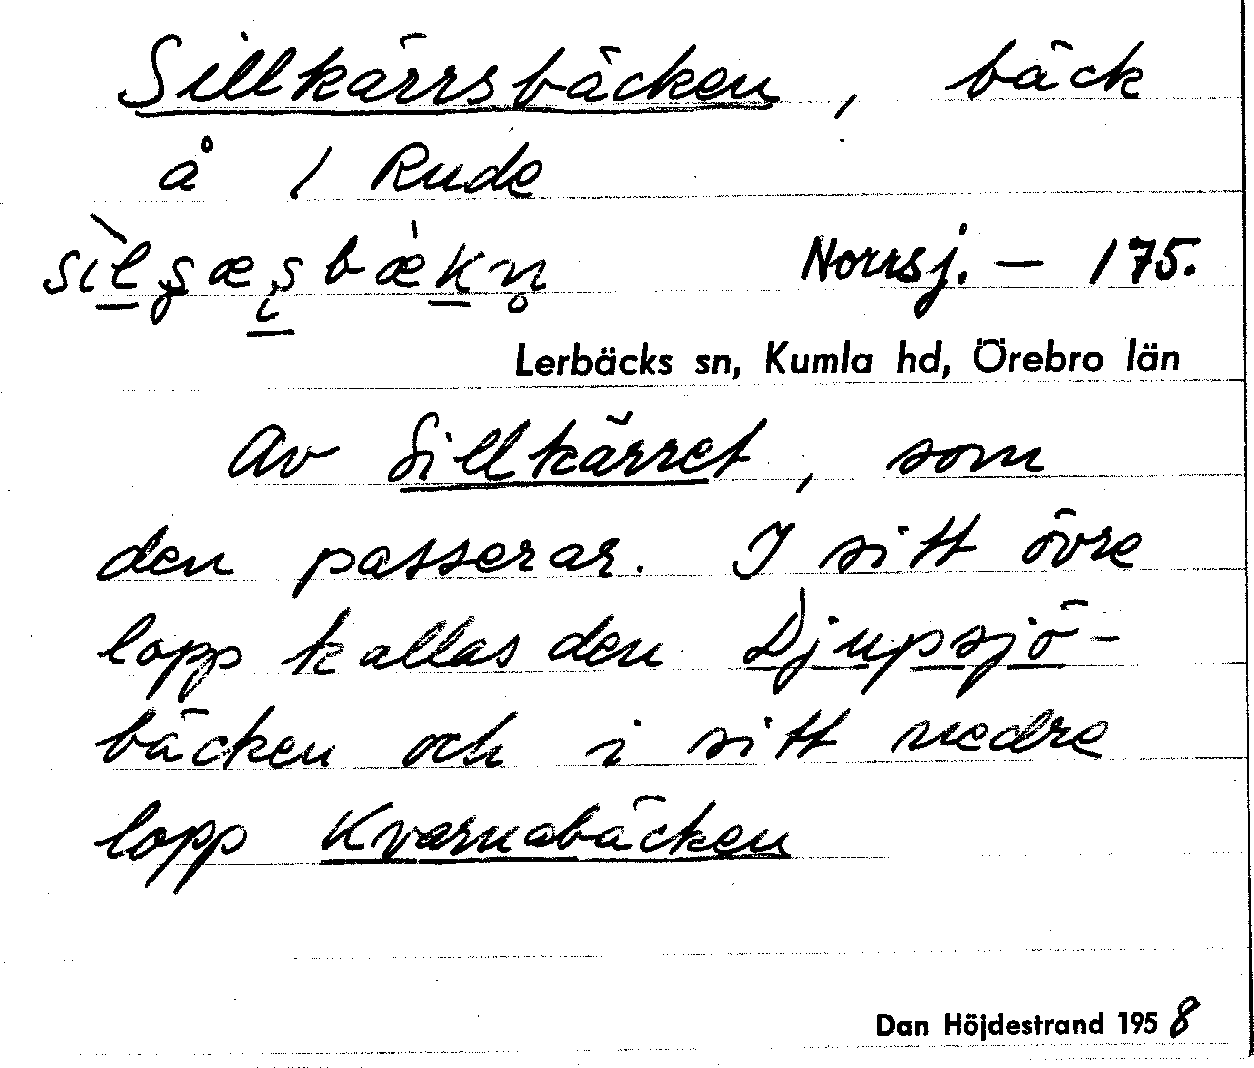 Sillkärrsbäcken, bäck
å 1 Rude
Norrsj. — 175.
Lerbäcks sn, Kumla hd, Örebro län
Av Sillkärret, som
den passerar. I sitt övre
lopp kallas den Djupsjö-
bäcken och i sitt nedre
lopp Kvarnabäcken
Dan Höjdestrand 1958